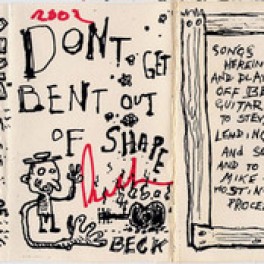 2002
DONT GET
BENT OUT
OF SHAPE
BECK
SONGS
HEREIN
AND PLAY
OFF
GUITAR
TO STEV
LENDING
AND SO
AND TO
MIKE
MOSTIN
PROCE